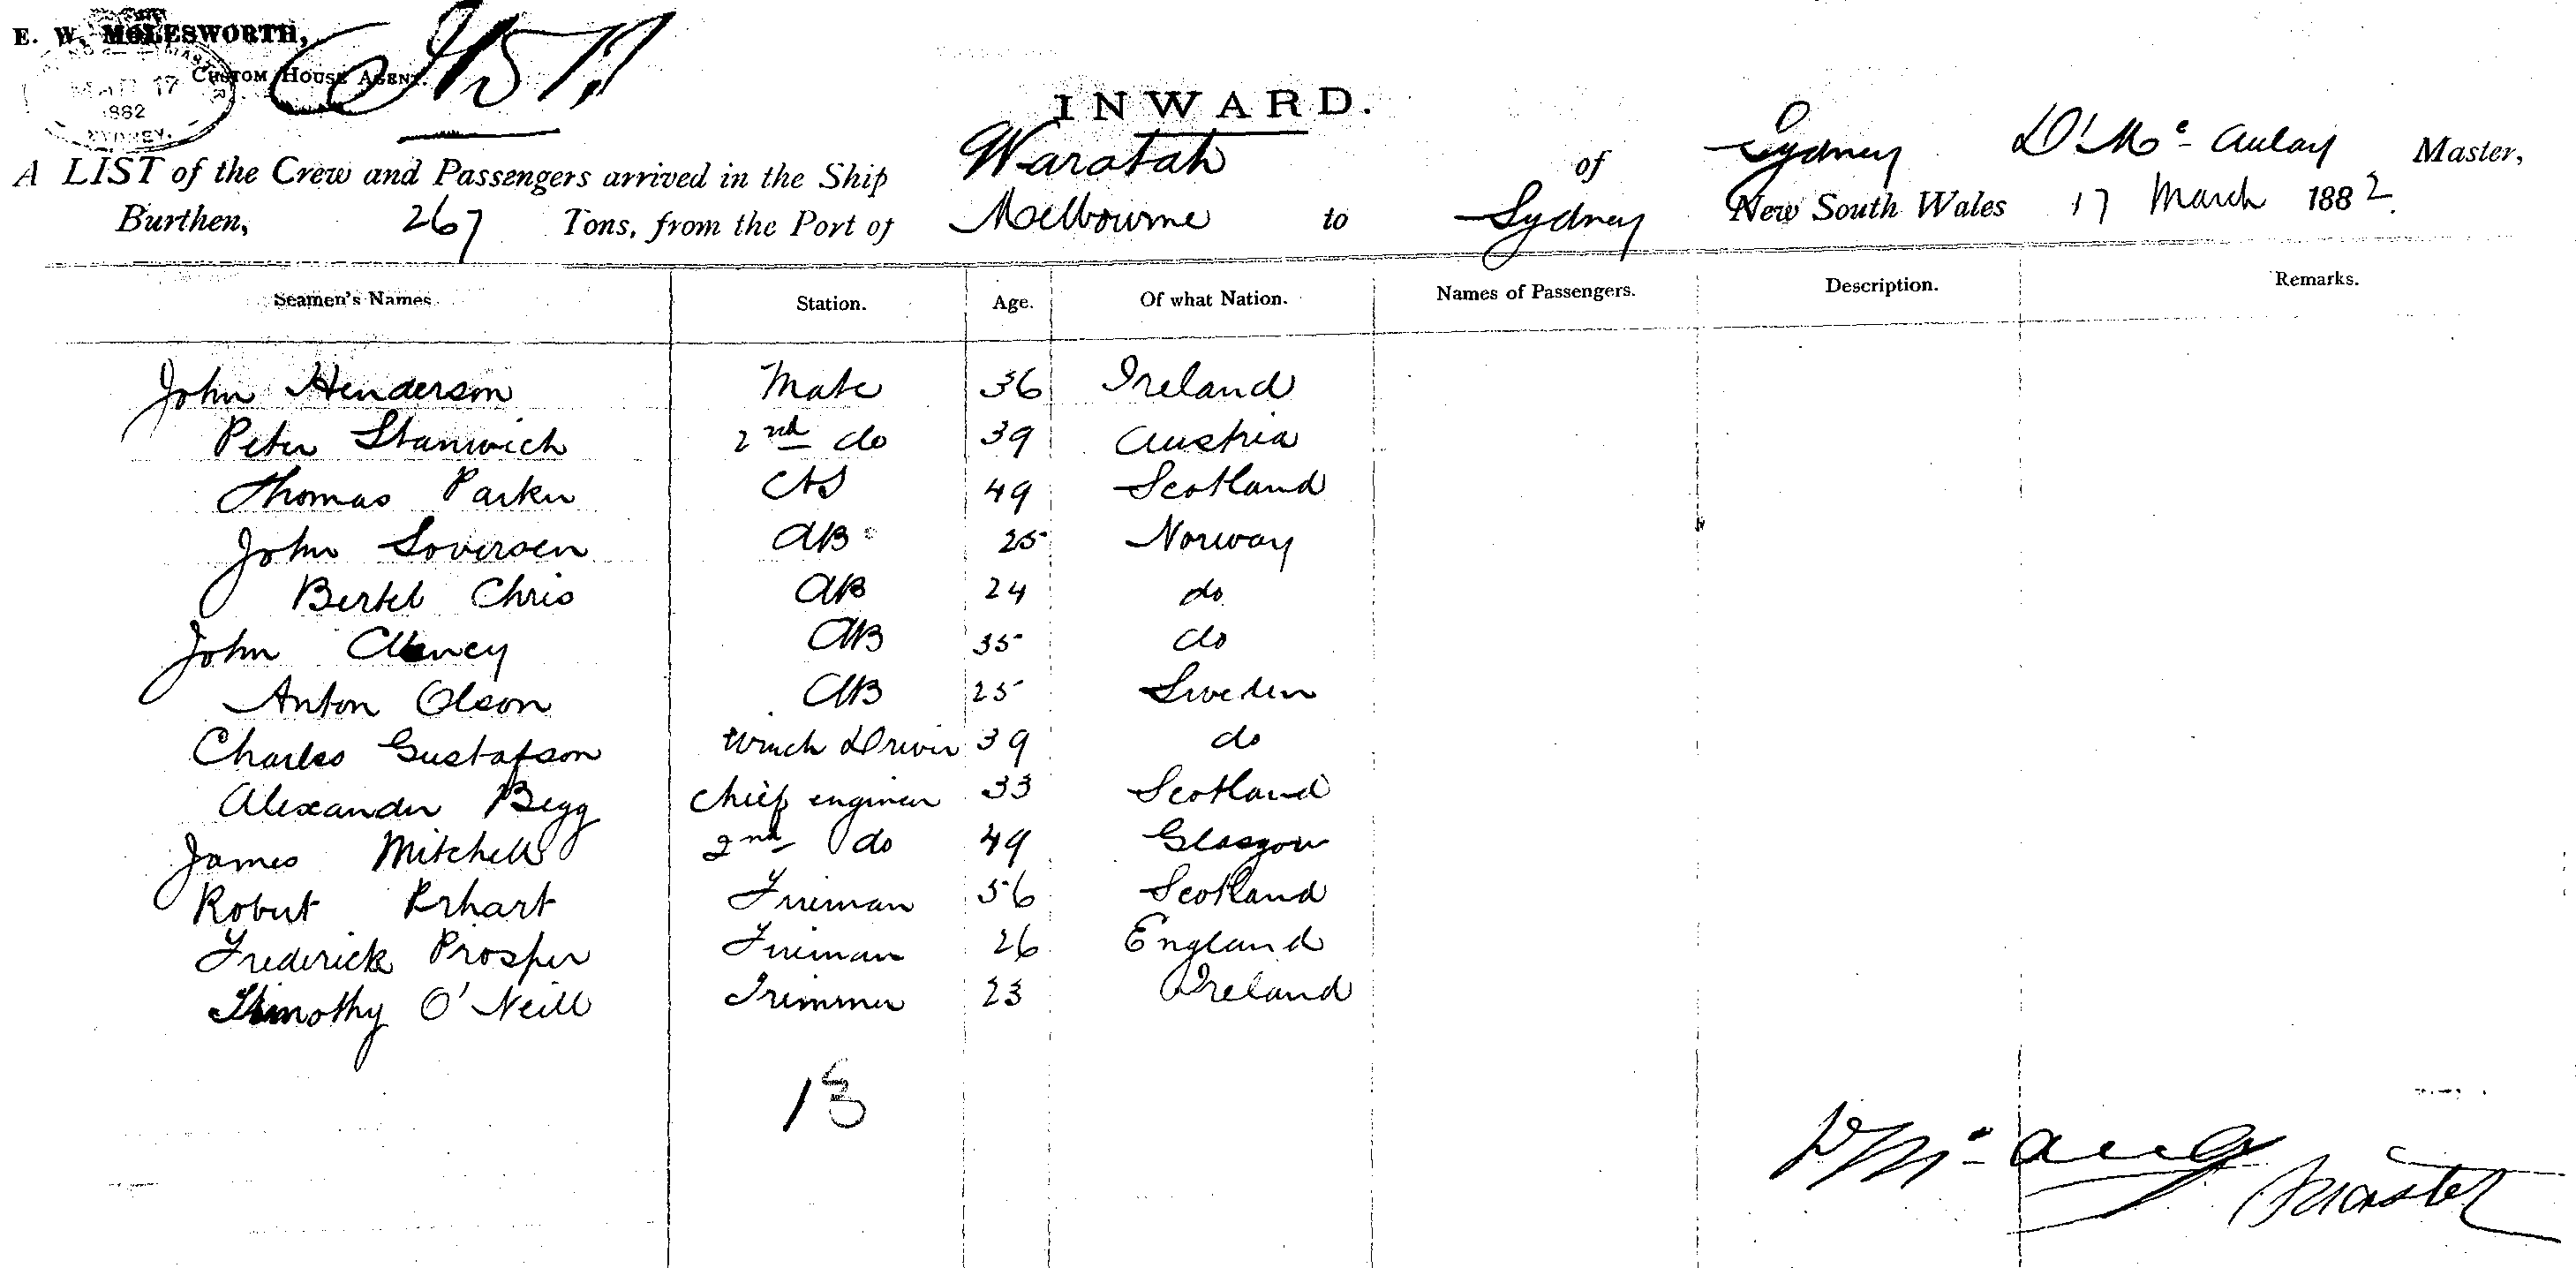 E. W. MOLESWORTH,
CUSTOM HOUSE AGENT.
17
1882
SYDNEY.
INWARD.
A LIST of the Crew and Passengers arrived in the Ship Waratah of Sydney D. Mc Aulay Master,
Burthen, 267 Tons, from the Port of Melbourne to Sydney New South Wales 17 March 1882.
Seamen's Names. Station. Age. Of what Nation. Names of Passengers. Description. Remarks.
John Henderson Mate 36 Ireland
Peter Stanwich 2nd do 39 Austria
Thomas Parker 49 Scotland
John Soversen AB 25 Norway
Bertel Chris AB 24 do
John AB 35 do
Anton Olson AB 25 Sweden
Charles Gustafson Winch Driver 39 do
Alexander Begg Chief engineer 33 Scotland
James Mitchell 2nd do 49 Glasgow
Robert Fireman 56 Scotland
Frederick Prosper Fireman 26 England
Timothy O'Neill Trimmer 23 Ireland
13
D Mc Aulay
Master